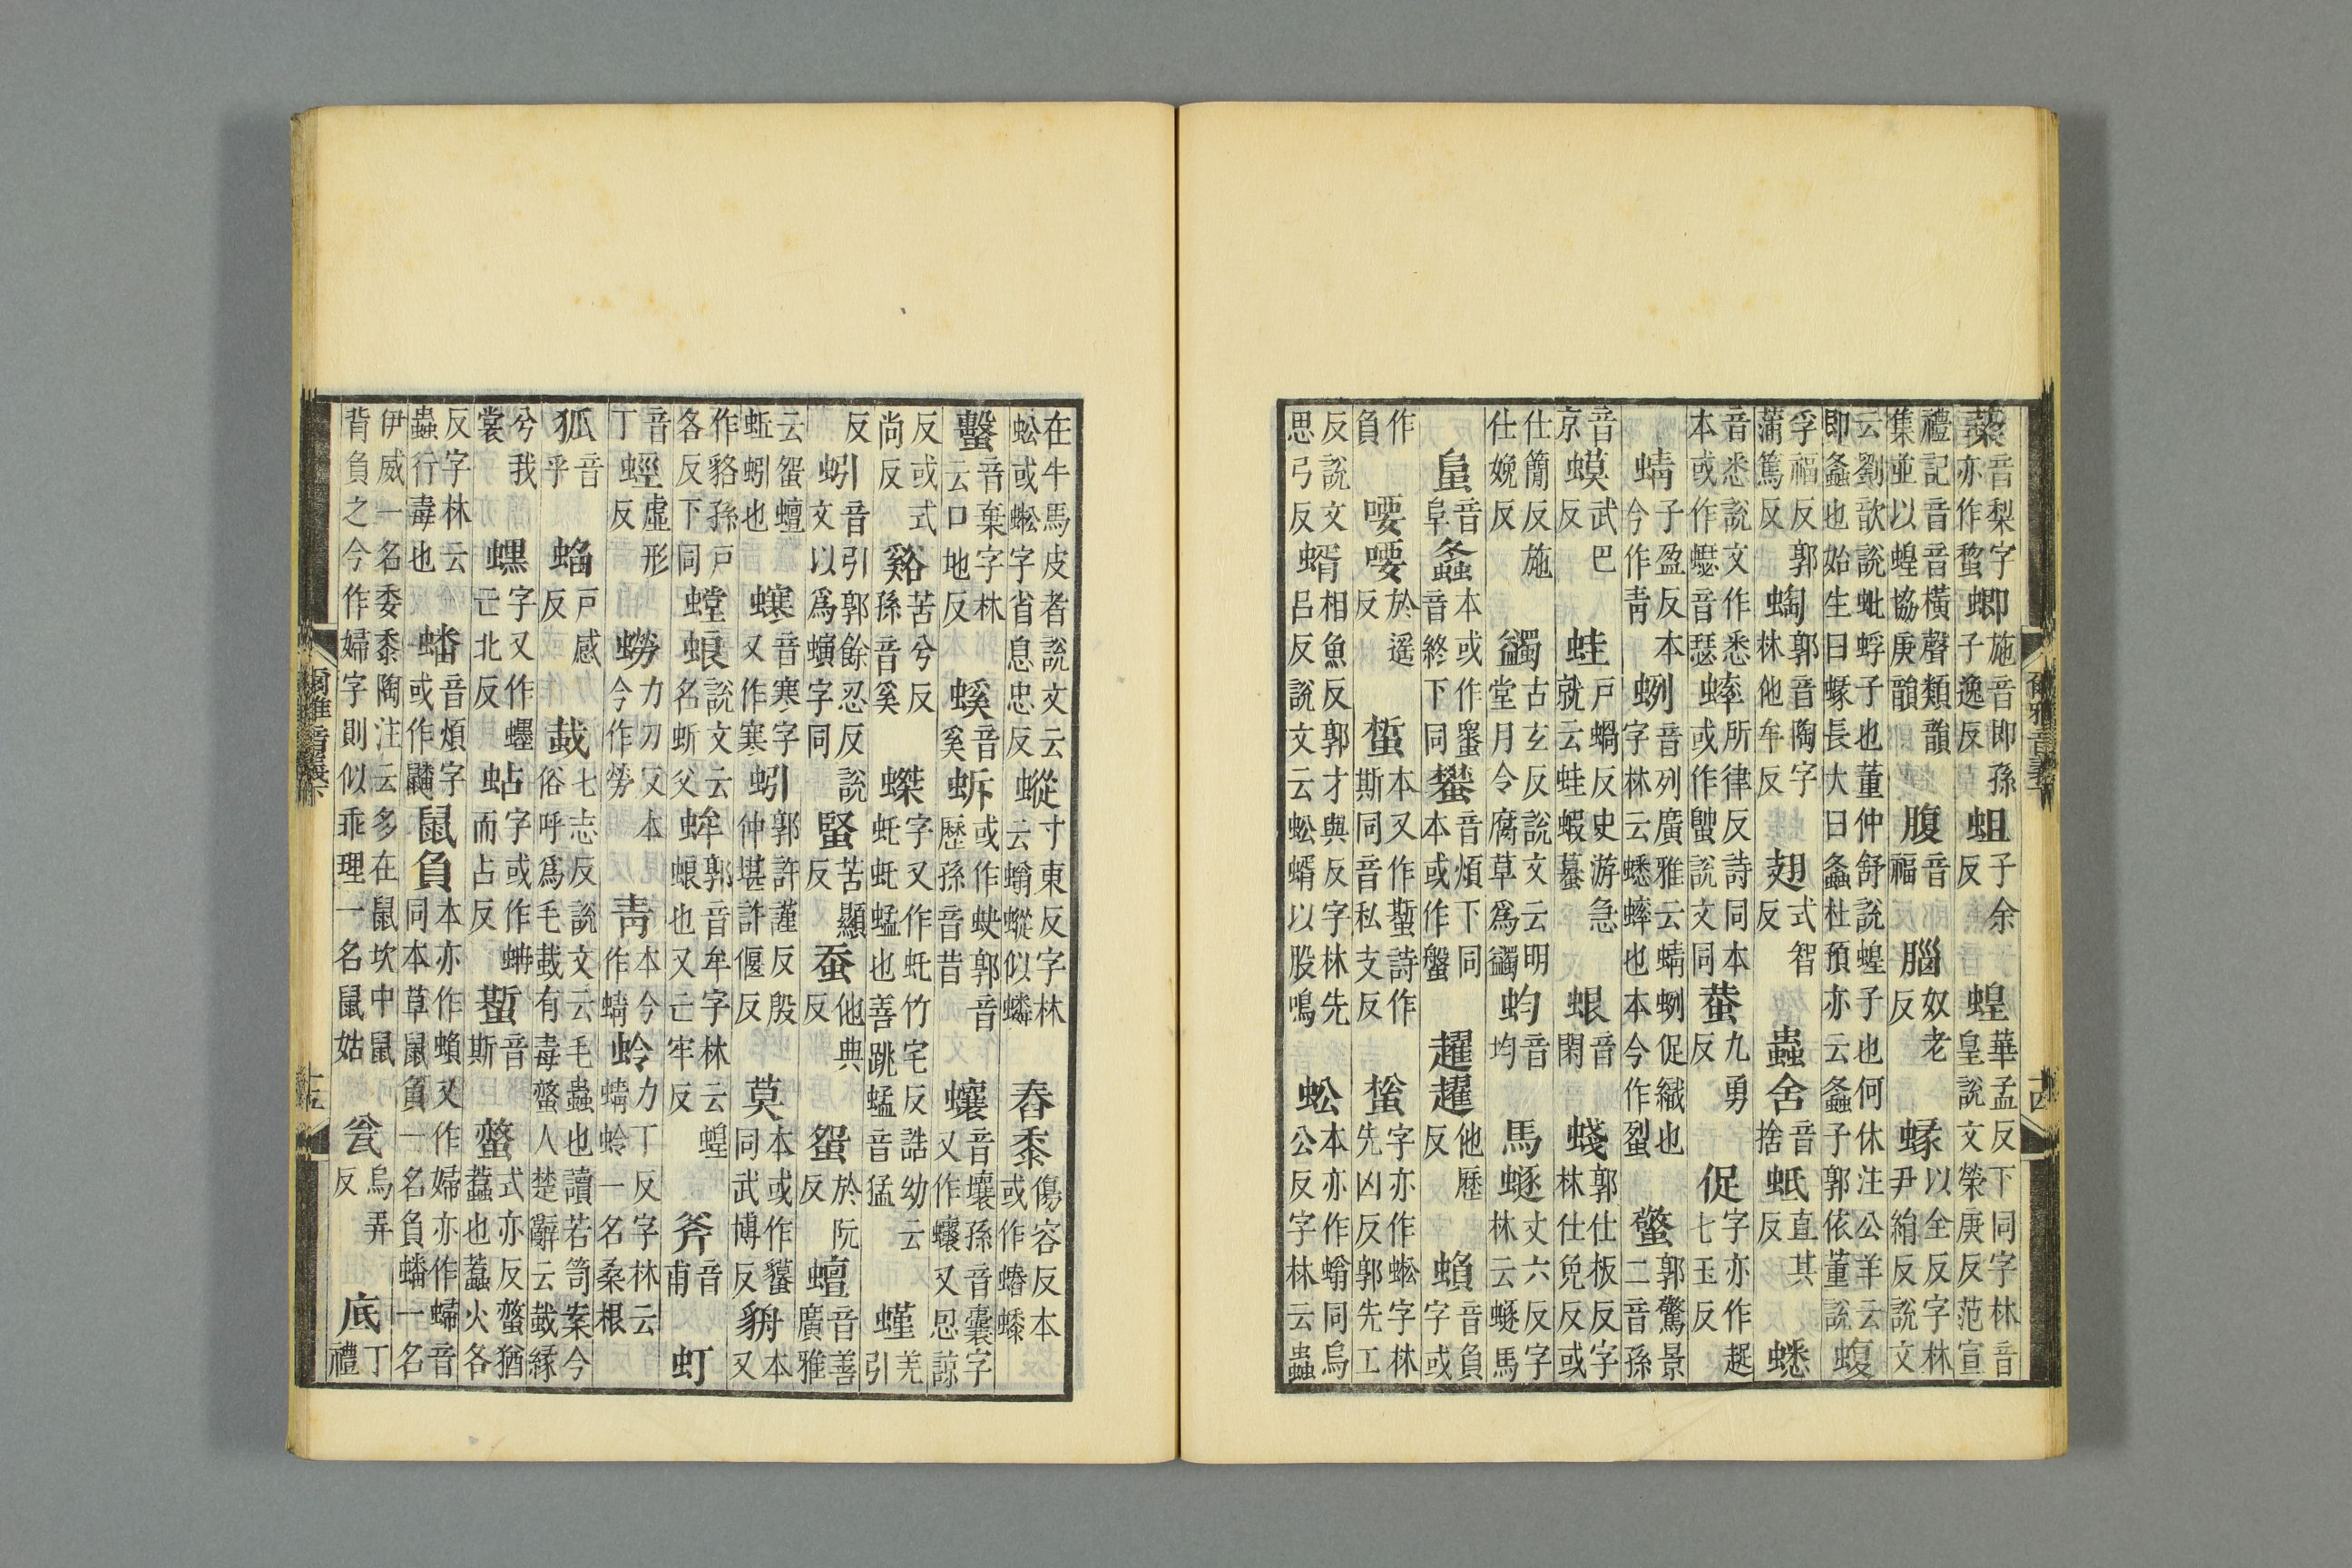 音梨字亦作蟍蝍施音即孫子逸反蛆子余反蝗華孟反下同字林音皇說文榮庚反范宣
禮記音音橫聲類韻集並以蝗協庚韻腹音福腦奴老反蝝以全反字林尹絹反說文
云劉歆說蚍蜉子也董仲舒說蝗子也何休注公羊云即螽也始生曰蝝長大曰螽杜預亦云螽子郭依董說蝮
孚福反郭蒲篤反蜪郭音陶字林他牟反翅式智反蟲舍音捨蚳直其反蟋
音悉說文作悉本或作蟋音瑟蟀所律反詩同本或作說文同蛬九勇反促字亦作趗七玉反
蜻子盈反本今作青蛚音列廣雅云蜻蛚促織也字林云蟋蟀也本今作蟼郭驚景二音孫
音京蟆武巴反蛙戶蝸反史游急就云蛙蝦蟇蛝音閑郭仕板反字林仕免反或
仕簡反施仕娩反蠲古玄反說文云明堂月令腐草爲蠲蚐音均馬丈六反字林云馬
蛗音阜螽本或作音終下同蠜音煩下同本或作趯趯他歷反蝜音負字或
作負喓喓於遙反蜤本又作蟴詩作斯同音私支反字亦作蜙字林先凶反郭先工
反說文思弓反蝑相魚反郭才與反字林先呂反說文云蚣蝑以股鳴蚣本亦作螉同烏公反字林云蟲
爾雅音義下
十四
在牛馬皮者說文云蚣或蜙字省息忠反寸東反字林云螉似舂黍傷容反本或作蝽
蟿音棄字林云口地反螇音奚蚸或作蚗郭音歷孫音昔蠰音壤孫音囊字又作蠰又恖諒
反或式尚反谿苦兮反孫音奚字又作虴竹宅反誥幼云虴虴蜢也善跳蜢音猛螼羌引
反蚓音引郭餘忍反說文以爲螾字同蜸苦顯反蚕他典反䖤於阮反蟺音善廣雅
云䖤蟺蚯蚓也音寒字又作寒蚓郭許謹反殷仲堪許偃反莫本或作同武博反貈本又
作貉孫戶各反下同螳蜋說文云名蚚父蛑郭音牟字林云蝗蜋也又亡牢反斧音甫虰
音丁蛵虛形反蟧力刀反本今作勞青本今作蜻蛉力丁反字林云蜻蛉一名桑根
狐音乎蜭戶感反蛓七志反說文云毛蟲也讀若笥案今俗呼爲毛蛓有毒螫人楚辭云蛓緣
兮我裳字又作亡北反蛅字或作蚺而占反蟴音斯螫式亦反螫猶蠚也蠚火各
反字林云蟲行毒也蟠音煩字或作鼠負本亦作蝜又作婦亦作音同本草鼠負一名負蟠一名
伊威一名委黍陶注云多在鼠坎中鼠背負之今作婦字則似乖理一名鼠姑瓮烏弄反底丁禮
爾雅音義下
十五